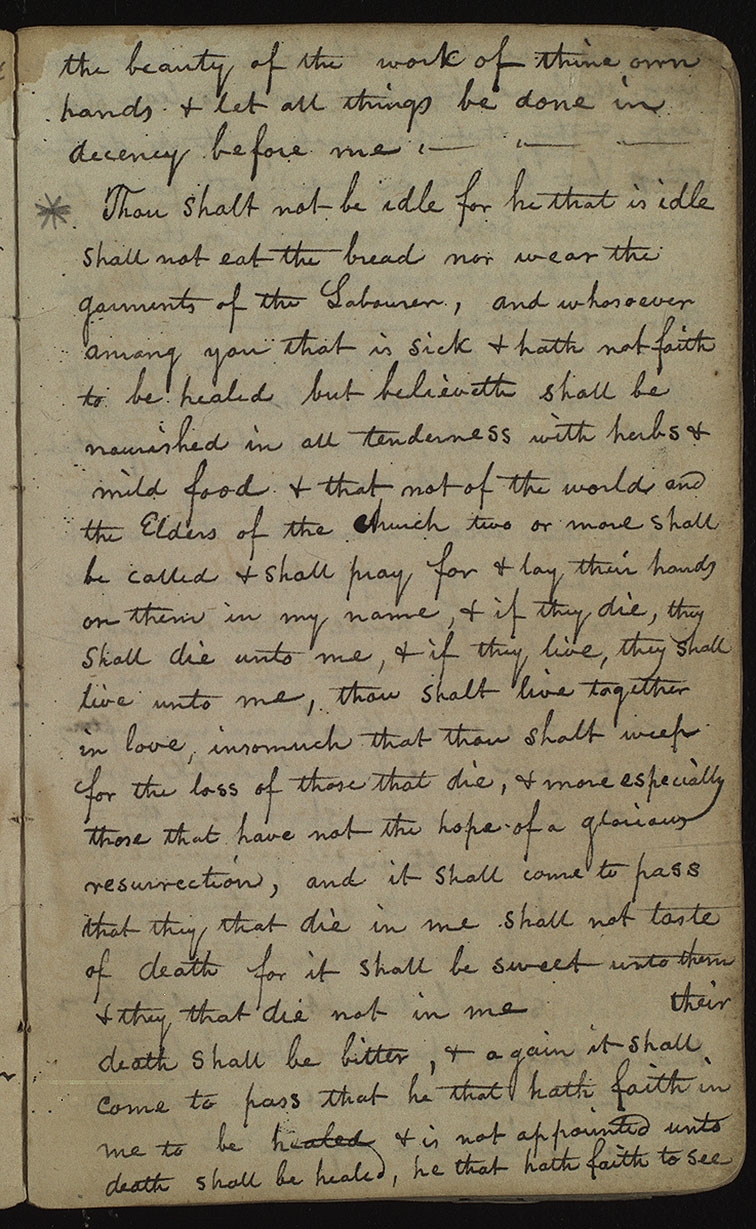 the beauty of the work of thine own
hands & let all things be done in
decency before me — — —
* Thou shalt not be idle for he that is idle
shall not eat the bread nor wear the
garments of the Labourer, and whosoever
among you that is sick & hath not faith
to be healed but believeth shall be
nourished in all tenderness with herbs &
mild food & that not of the world and
the Elders of the church two or more shall
be called & shall pray for & lay their hands
on them in my name, & if they die, they
shall die unto me, & if they live, they shall
live unto me, thou shalt live together
in love, insomuch that thou shalt weep
for the loss of those that die, & more especially
those that have not the hope of a glorious
resurrection, and it shall come to pass
that they that die in me shall not taste
of death for it shall be sweet unto them
& they that die not in me their
death shall be bitter, & again it shall
come to pass that he that hath faith in
me to be healed & is not appointed unto
death shall be healed, he that hath faith to see